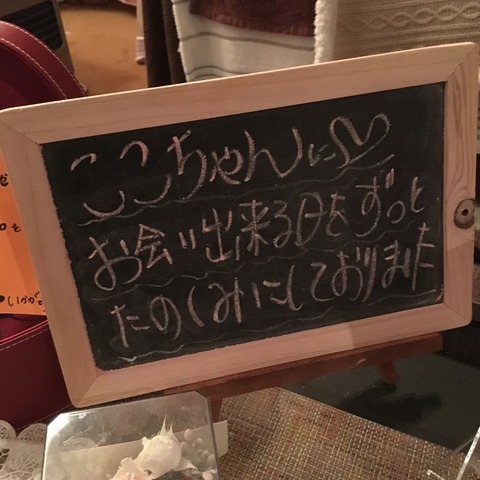 ここちゃんに♡
お会い出来る日をずっと
たのしみにしておりました